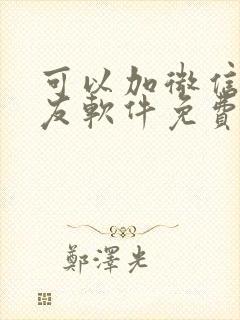 可以加微信
友軟件免費
鄭澤光